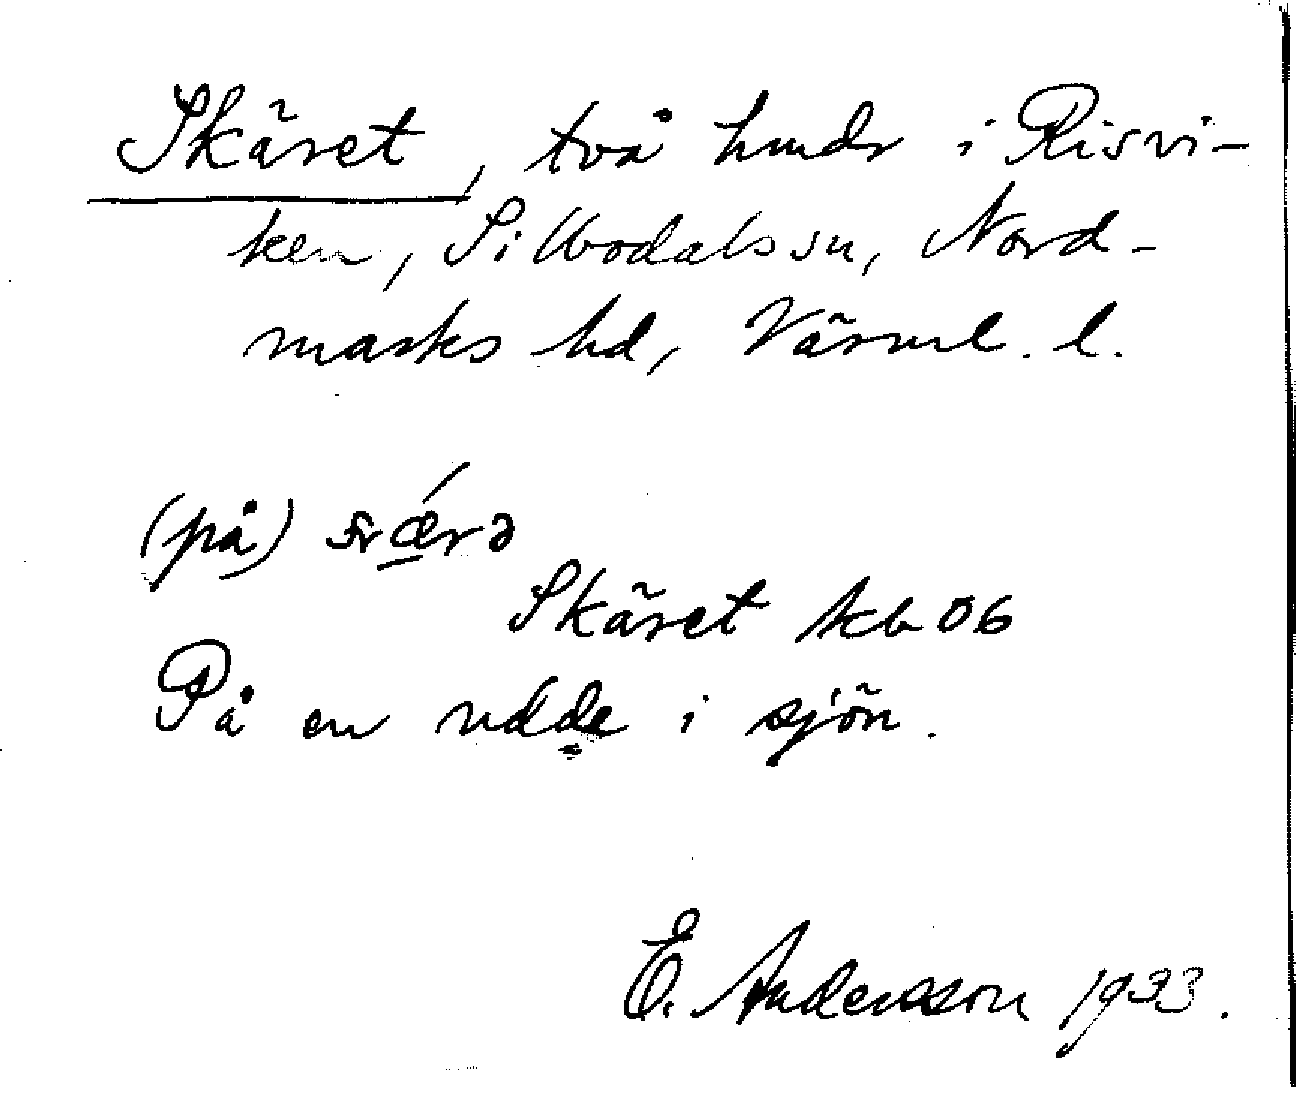 Skäret, två hmdr i Risvi-
ken, Sillbodals sn, Nord-
marks hd, Värml. l.
(på)
Skäret kb 06
På en udde i sjön.
E. Andersson 1933.